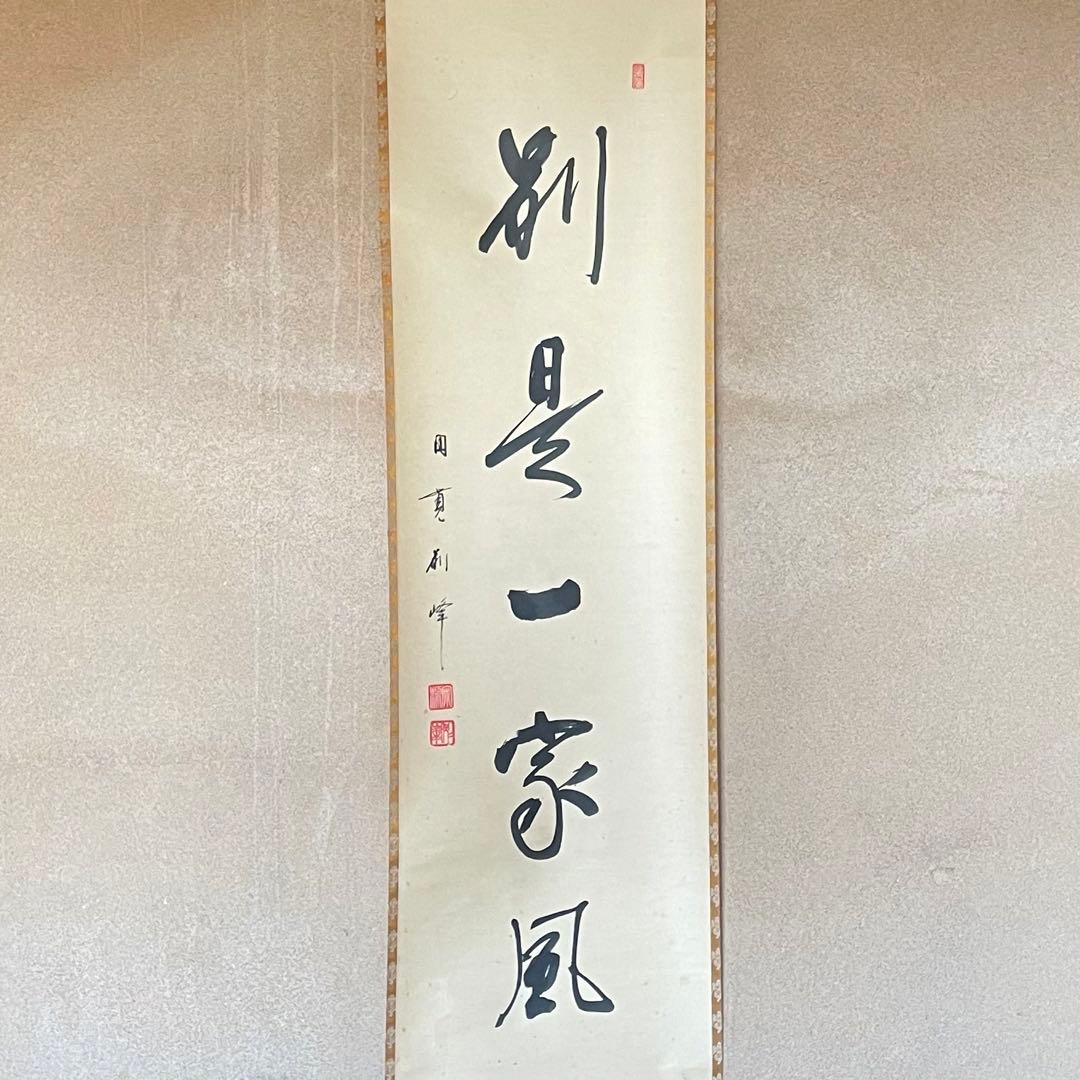 別是一家風
円覚別峰